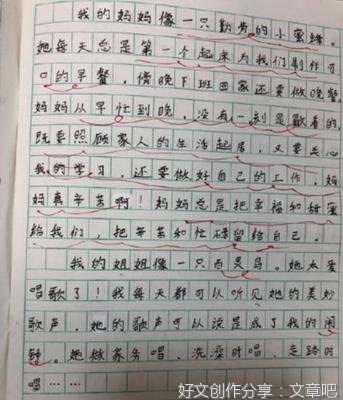 我的妈妈像一只勤劳的小蜜蜂。
她每天总是第一个起来为我们制作可
口的早餐，傍晚下班回家还要做晚餐。
妈妈从早忙到晚，没有一刻是歇着的，
既要照顾家人的生活起居，又要关心
我的学习，还要做好自己的工作，妈
妈真辛苦啊！妈妈总是把幸福和甜蜜
给我们，把辛苦和忙碌留给自己。
我的姐姐像一只百灵鸟。她太爱
唱歌了！我每天都可以听见她的美妙
歌声，她的歌声可以说是成了我的闹
钟。她做家务唱，洗澡时唱，走路时
唱……
好文创作分享：文章吧